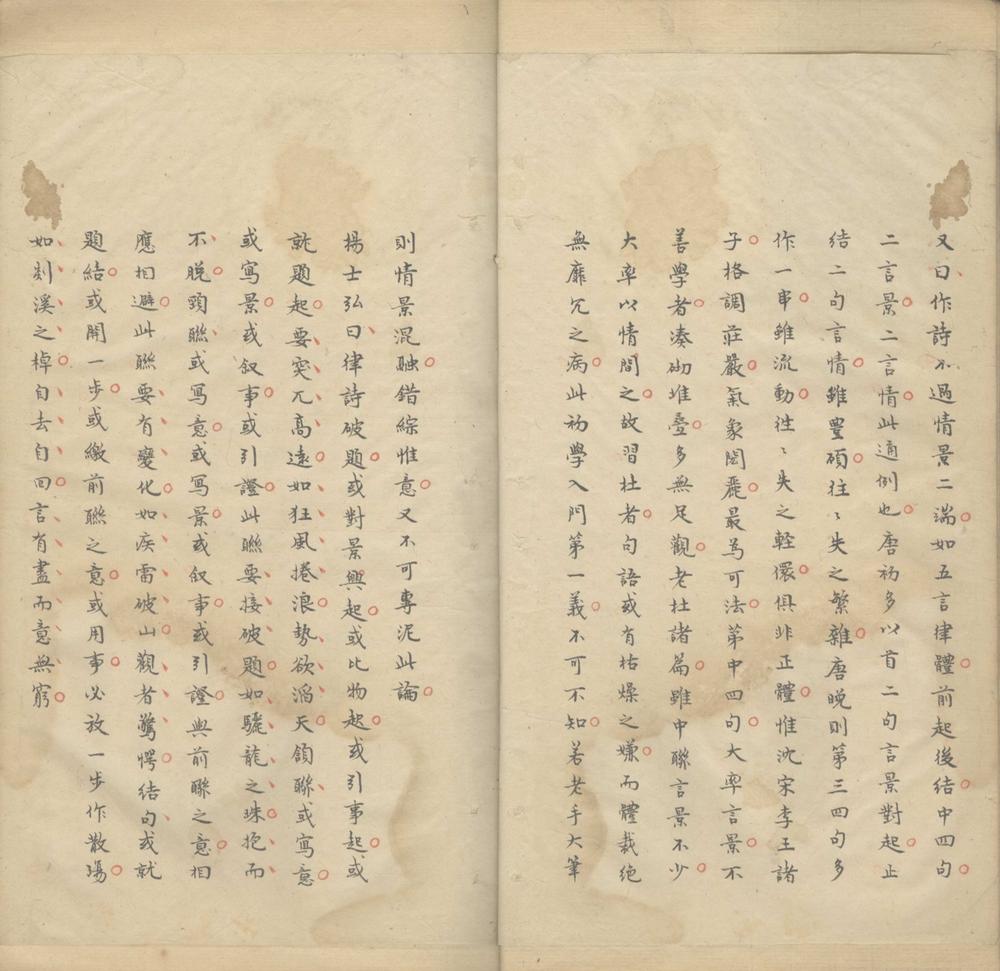 又曰作詩不過情景二端如五言律體前起後結中四句
二言景二言情此通例也唐初多以首二句言景對起止
結二句言情雖豐碩往〻失之繁雜唐晚則第三四句多
作一串雖流動往〻失之輕儇俱非正體惟沈宋李王諸
子格調莊嚴氣象閎麗最為可法第中四句大率言景不
善學者湊砌堆疊多無足觀老杜諸篇雖中聯言景不少
大率以情間之故習杜者句語或有枯燥之嫌而體裁絕
無靡冗之病此初學入門第一義不可不知若老手大筆
則情景混融錯綜惟意又不可專泥此論
楊士弘曰律詩破題或對景興起或比物起或引事起或
就題起要突兀高遠如狂風捲浪勢欲滔天頷聯或寫意
或寫景或叙事或引證此聯要接破題如驪龍之珠抱而
不脫頸聯或寫意或寫景或叙事或引證與前聯之意相
應相避此聯要有變化如疾雷破山觀者驚愕結句或就
題結或開一步或繳前聯之意或用事必放一步作散場
如剡溪之棹自去自回言有盡而意無窮